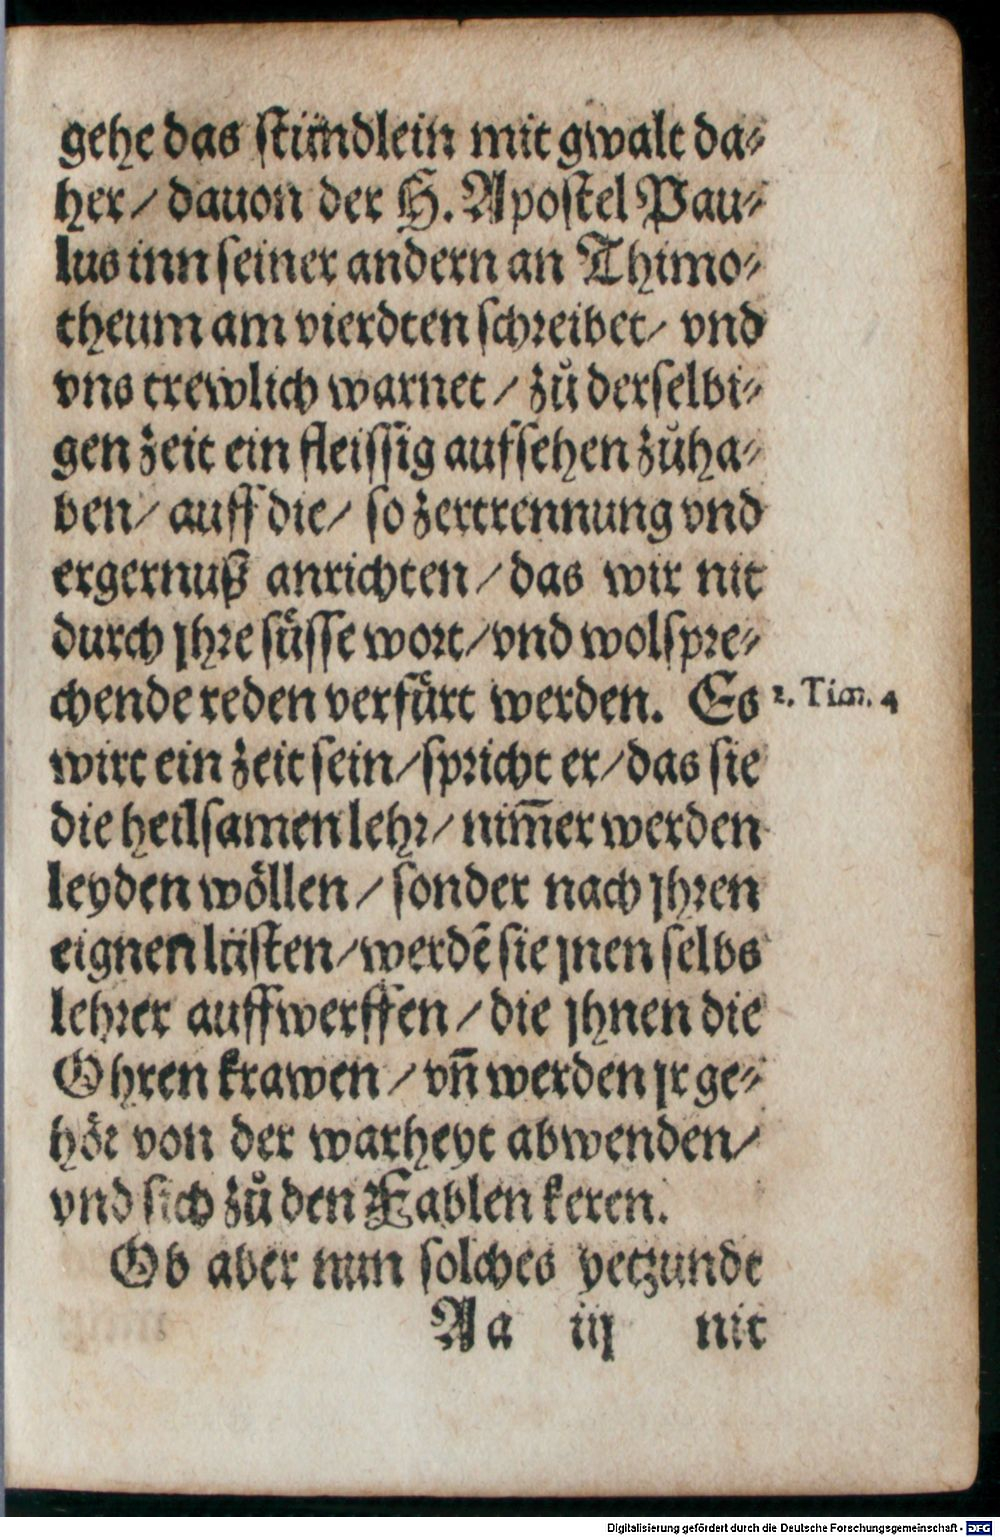 gehe das stündlein mit gwalt da⸗
her / dauon der H. Apostel Pau⸗
lus inn seiner andern an Thimo⸗
theum am vierdten schreibet / vnd
vns trewlich warnet / zů derselbi⸗
gen zeit ein fleissig aufsehen zůha⸗
ben / auff die / so zertrennung vnd
ergernuß anrichten / das wir nit
durch jhre süsse wort / vnd wolspre⸗
chende reden verfürt werden. Es
2. Tim. 4
wirt ein zeit sein / spricht er / das sie
die heilsamen lehr / nim̄er werden
leyden wöllen / sonder nach jhren
eignen lüsten / werdē sie jnen selbs
lehrer auffwerffen / die jhnen die
Ohren krawen / vn̄ werden jr ge⸗
hör von der warheyt abwenden /
vnd sich zů den Fablen keren.
Ob aber nun solches yetzundt
Aa iij nit
Digitalisierung gefördert durch die Deutsche Forschungsgemeinschaft - DFG